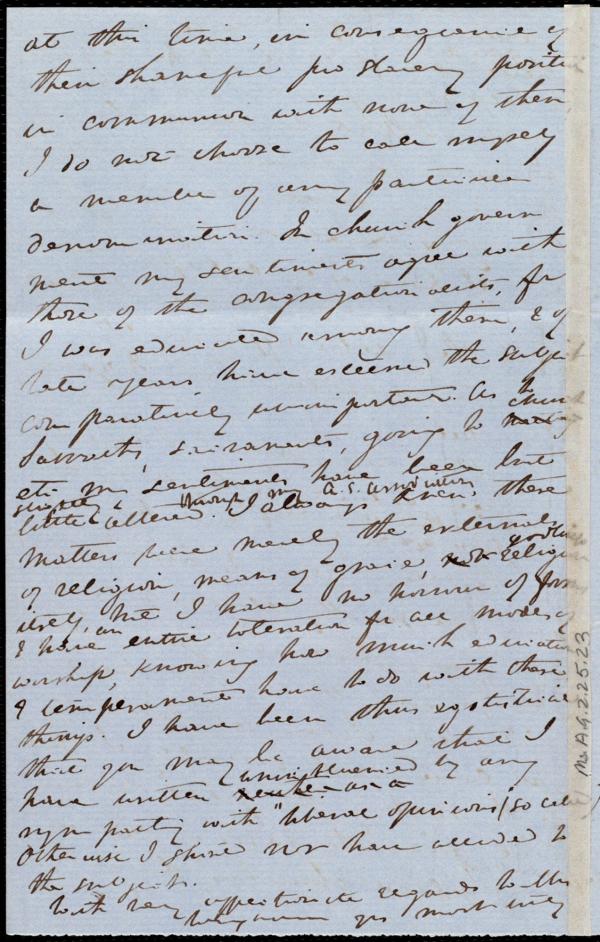 at this time, in consequence of
their shameful pro slavery position
in communion with none of them,
I do not choose to call myself
a member of any particular
denomination. In church govern
ment my sentiments agree with
those of the congregationalists, for
I was educated among them, & of
late years have esteemed the subject
comparatively unimportant. As to
Sabbaths, sacraments, going to church
etc my sentiments have been but
little altered through my A.S. association
I always knew these
matters were merely the externals
of religion, means of grace, not religion
itself, I have no horror of
& have an entire toleration for all modes of
worship, knowing how much education
& temperament have to do with these
things. I have been thus egotistical
that you may be aware that I
have written uninfluenced by any
sympathy with "liberal opinions" (so called)
Otherwise I should not have alluded to
the subject.
With very affectionate regards to the
yrs most truly
Ms.A.9.2.25.23